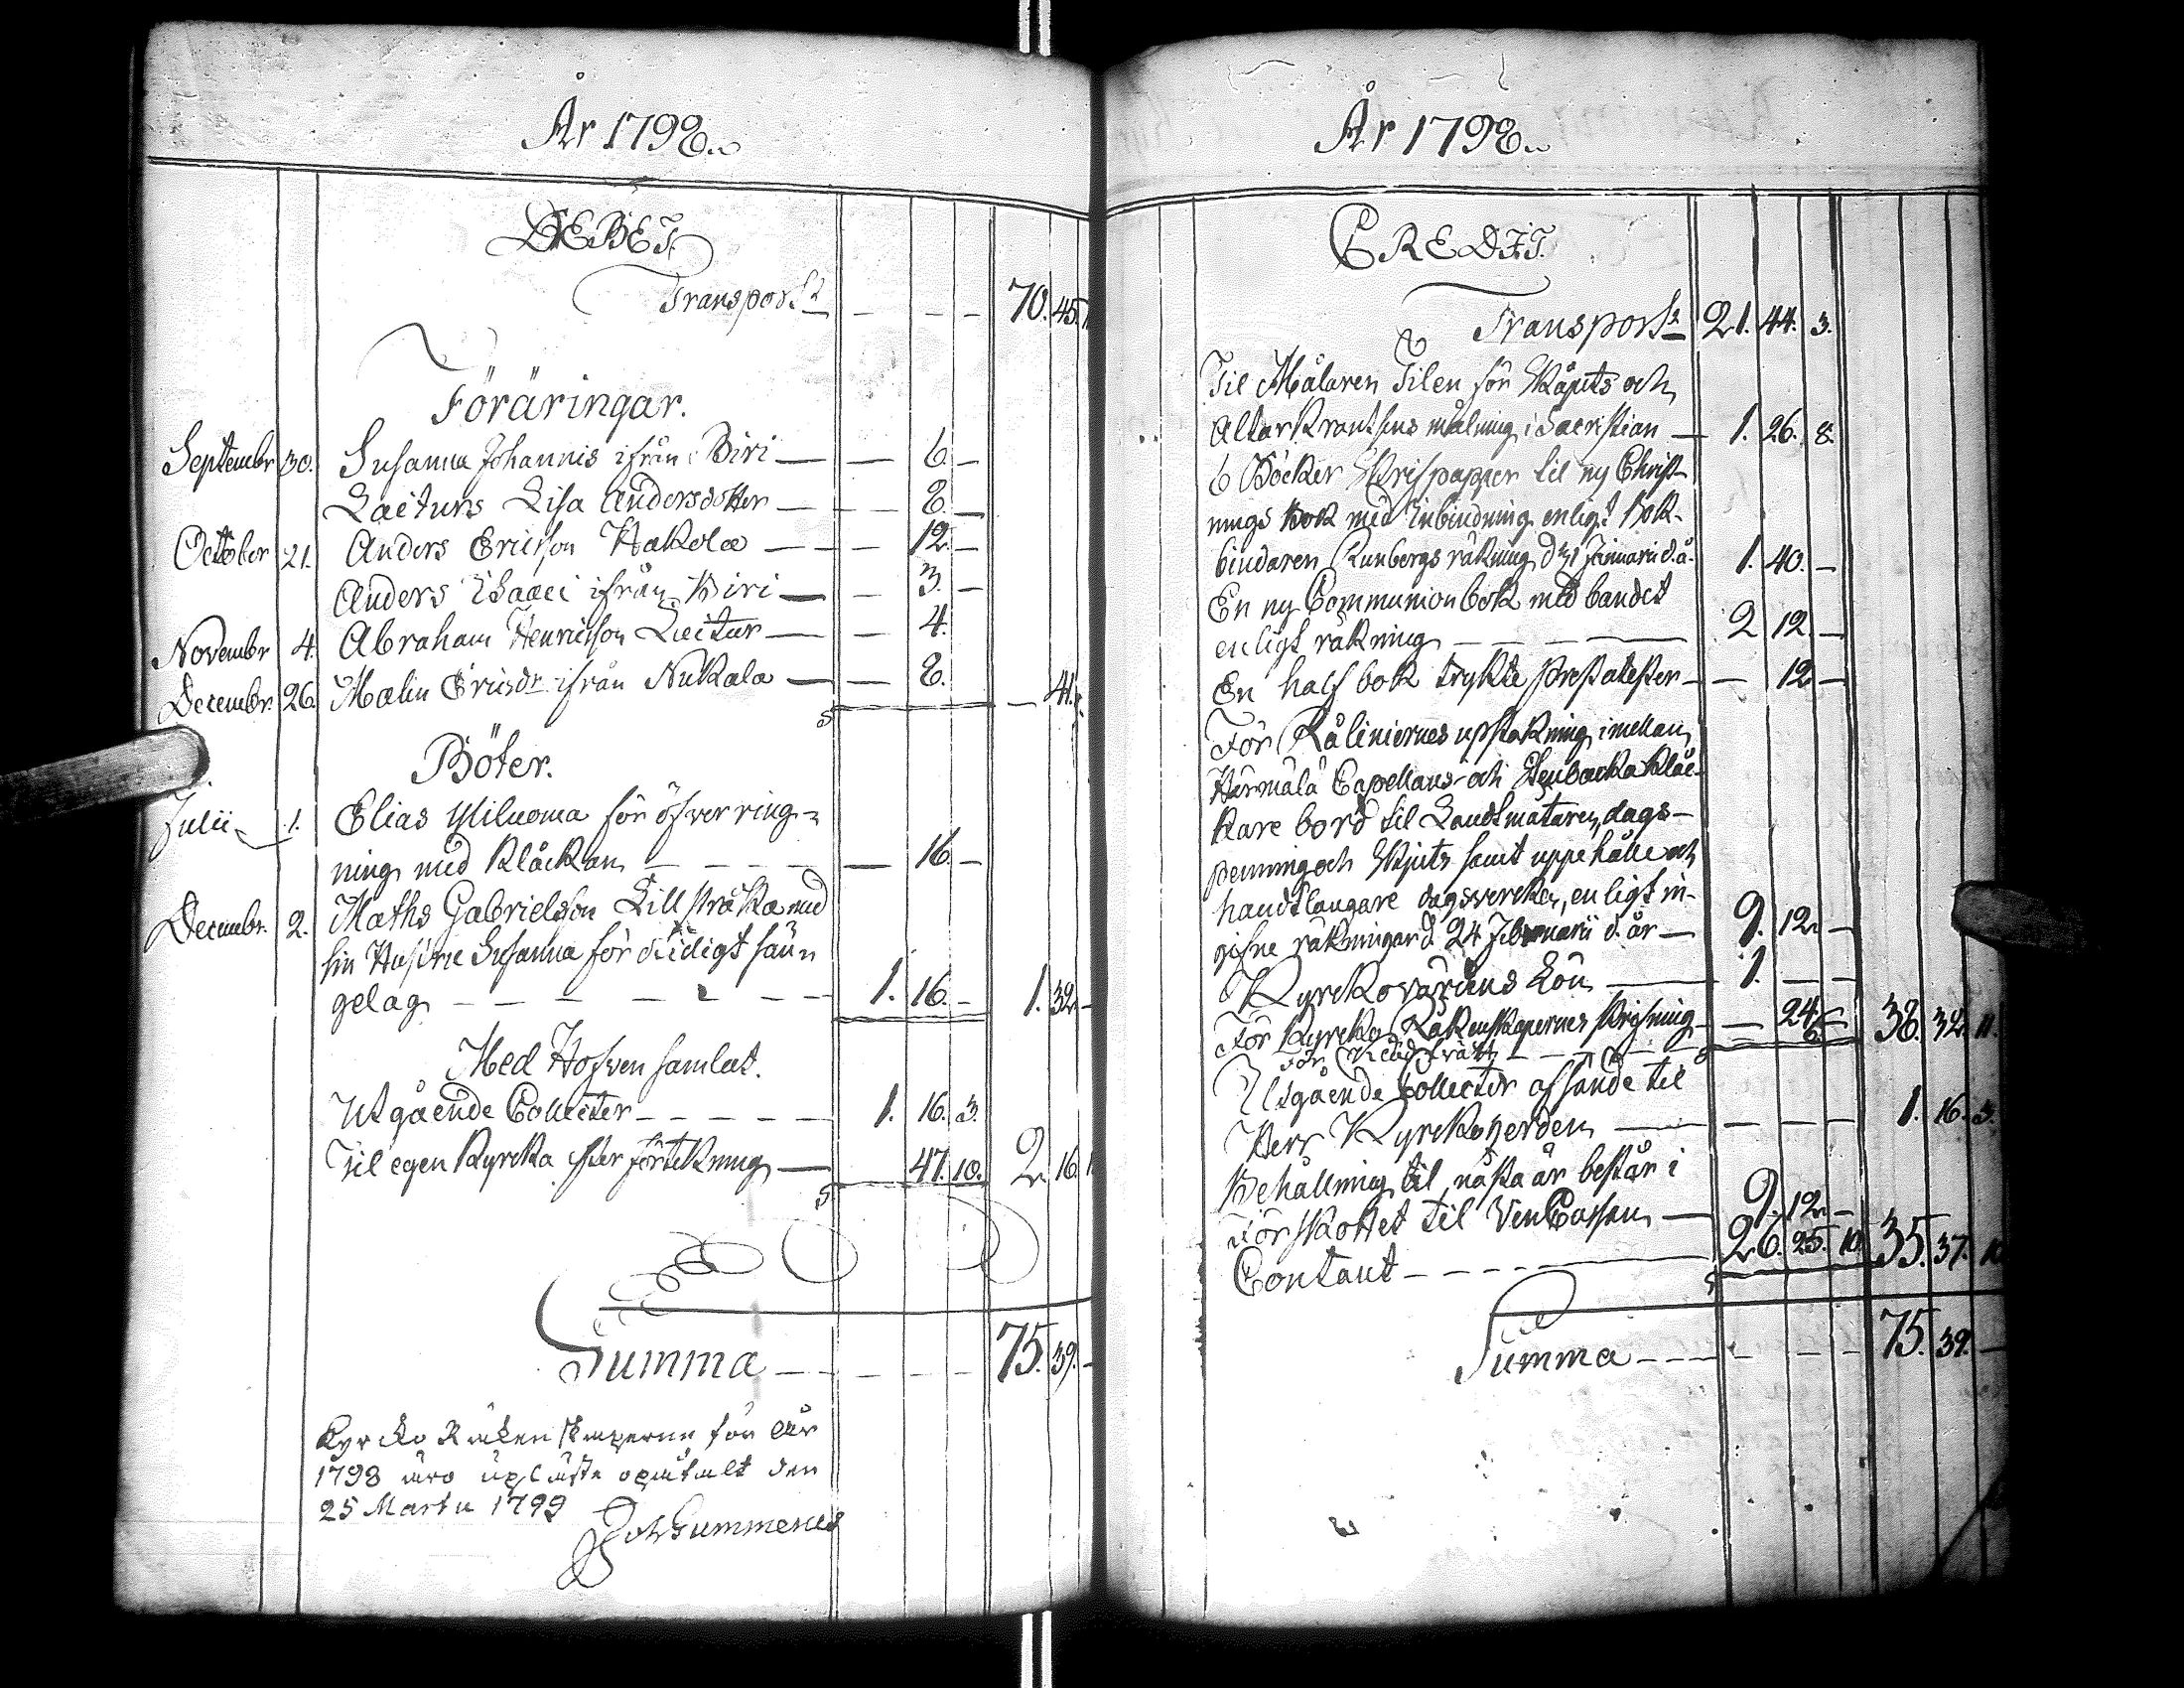 År 1798.
DEBET.
Transport - - - - 70. 45.
Föräringar.
Septembr 30. Susanna Johannis ifrån Biri — — 6. —
Laiturs Lisa Andersdotter — — — 8. —
October 21. Anders Ericsson Hakola — — — 12. —
Anders Isaaci ifrån Biri — — 3. —
Novembr 4. Abraham Henricsson Laitur — — 4.
Decembr. 26. Malin Ericsdr ifrån Nukala — — 8. — 41.
Böter.
Julii 1. Elias Yliluoma för öfver ring-
ning med Klåckan — — — — 16. —
Decembr. 2. Maths Gabrielsson Lillstråka med
sin Hustru Susanna för otidigt sän-
gelag — — — — — 1. 16. — 1. 32. —
Med Hofven samlat.
Utgående Collecter — — — — 1. 16. 3.
Til egen Kyrcka efter förtekning — 47. 10. 2. 16. 1
Summa — — — — 75. 39. —
Kyrcko Räkenskaperne för År
1798 äro upläste opåtalt den
25 Martii 1799
Joh Gummerus
År 1798.
CREDIT.
Transport 21. 44. 3.
Til Målaren Tilen för Skåpets och
Altarkrantsens målning i Sacristian — 1. 26. 8.
6 Böcker Skrifpapper til ny Christ-
nings Bok med Inbindning enligt Bok-
bindaren Runbergs räkning d 31 Januarii d. å. 1. 40. —
En ny Communion bok med bandet
enligt räkning — — — — 2 12. —
En half bok trykte Prestatester — — 12 —
För Råliniernes upstakning imellan
Härmälä Capellans och Stenbacka Klåc-
kare bord til Landtmätaren, dags-
penning och Skjuts samt uppehälle och
handtlangare dagsvercken, enligt in-
gifne räkningar d. 24 Februarii d. år — 9. 12. —
Kyrckovärdens Lön — 1. — —
För Kyrcko Räkenskapernes skrifning — — 24. — 38. 32. 11.
För Klädtvätt — — — 6.
Utgående Collecter afsände til
Herr Kyrckoherden — — — — 1. 16. 3.
Behållning til nästa år består i
Förskottet til Vin Cassan — 9. 12. —
Contant — — — — 26. 25. 10. 35. 37. 10
Summa — — — — 75. 39. —